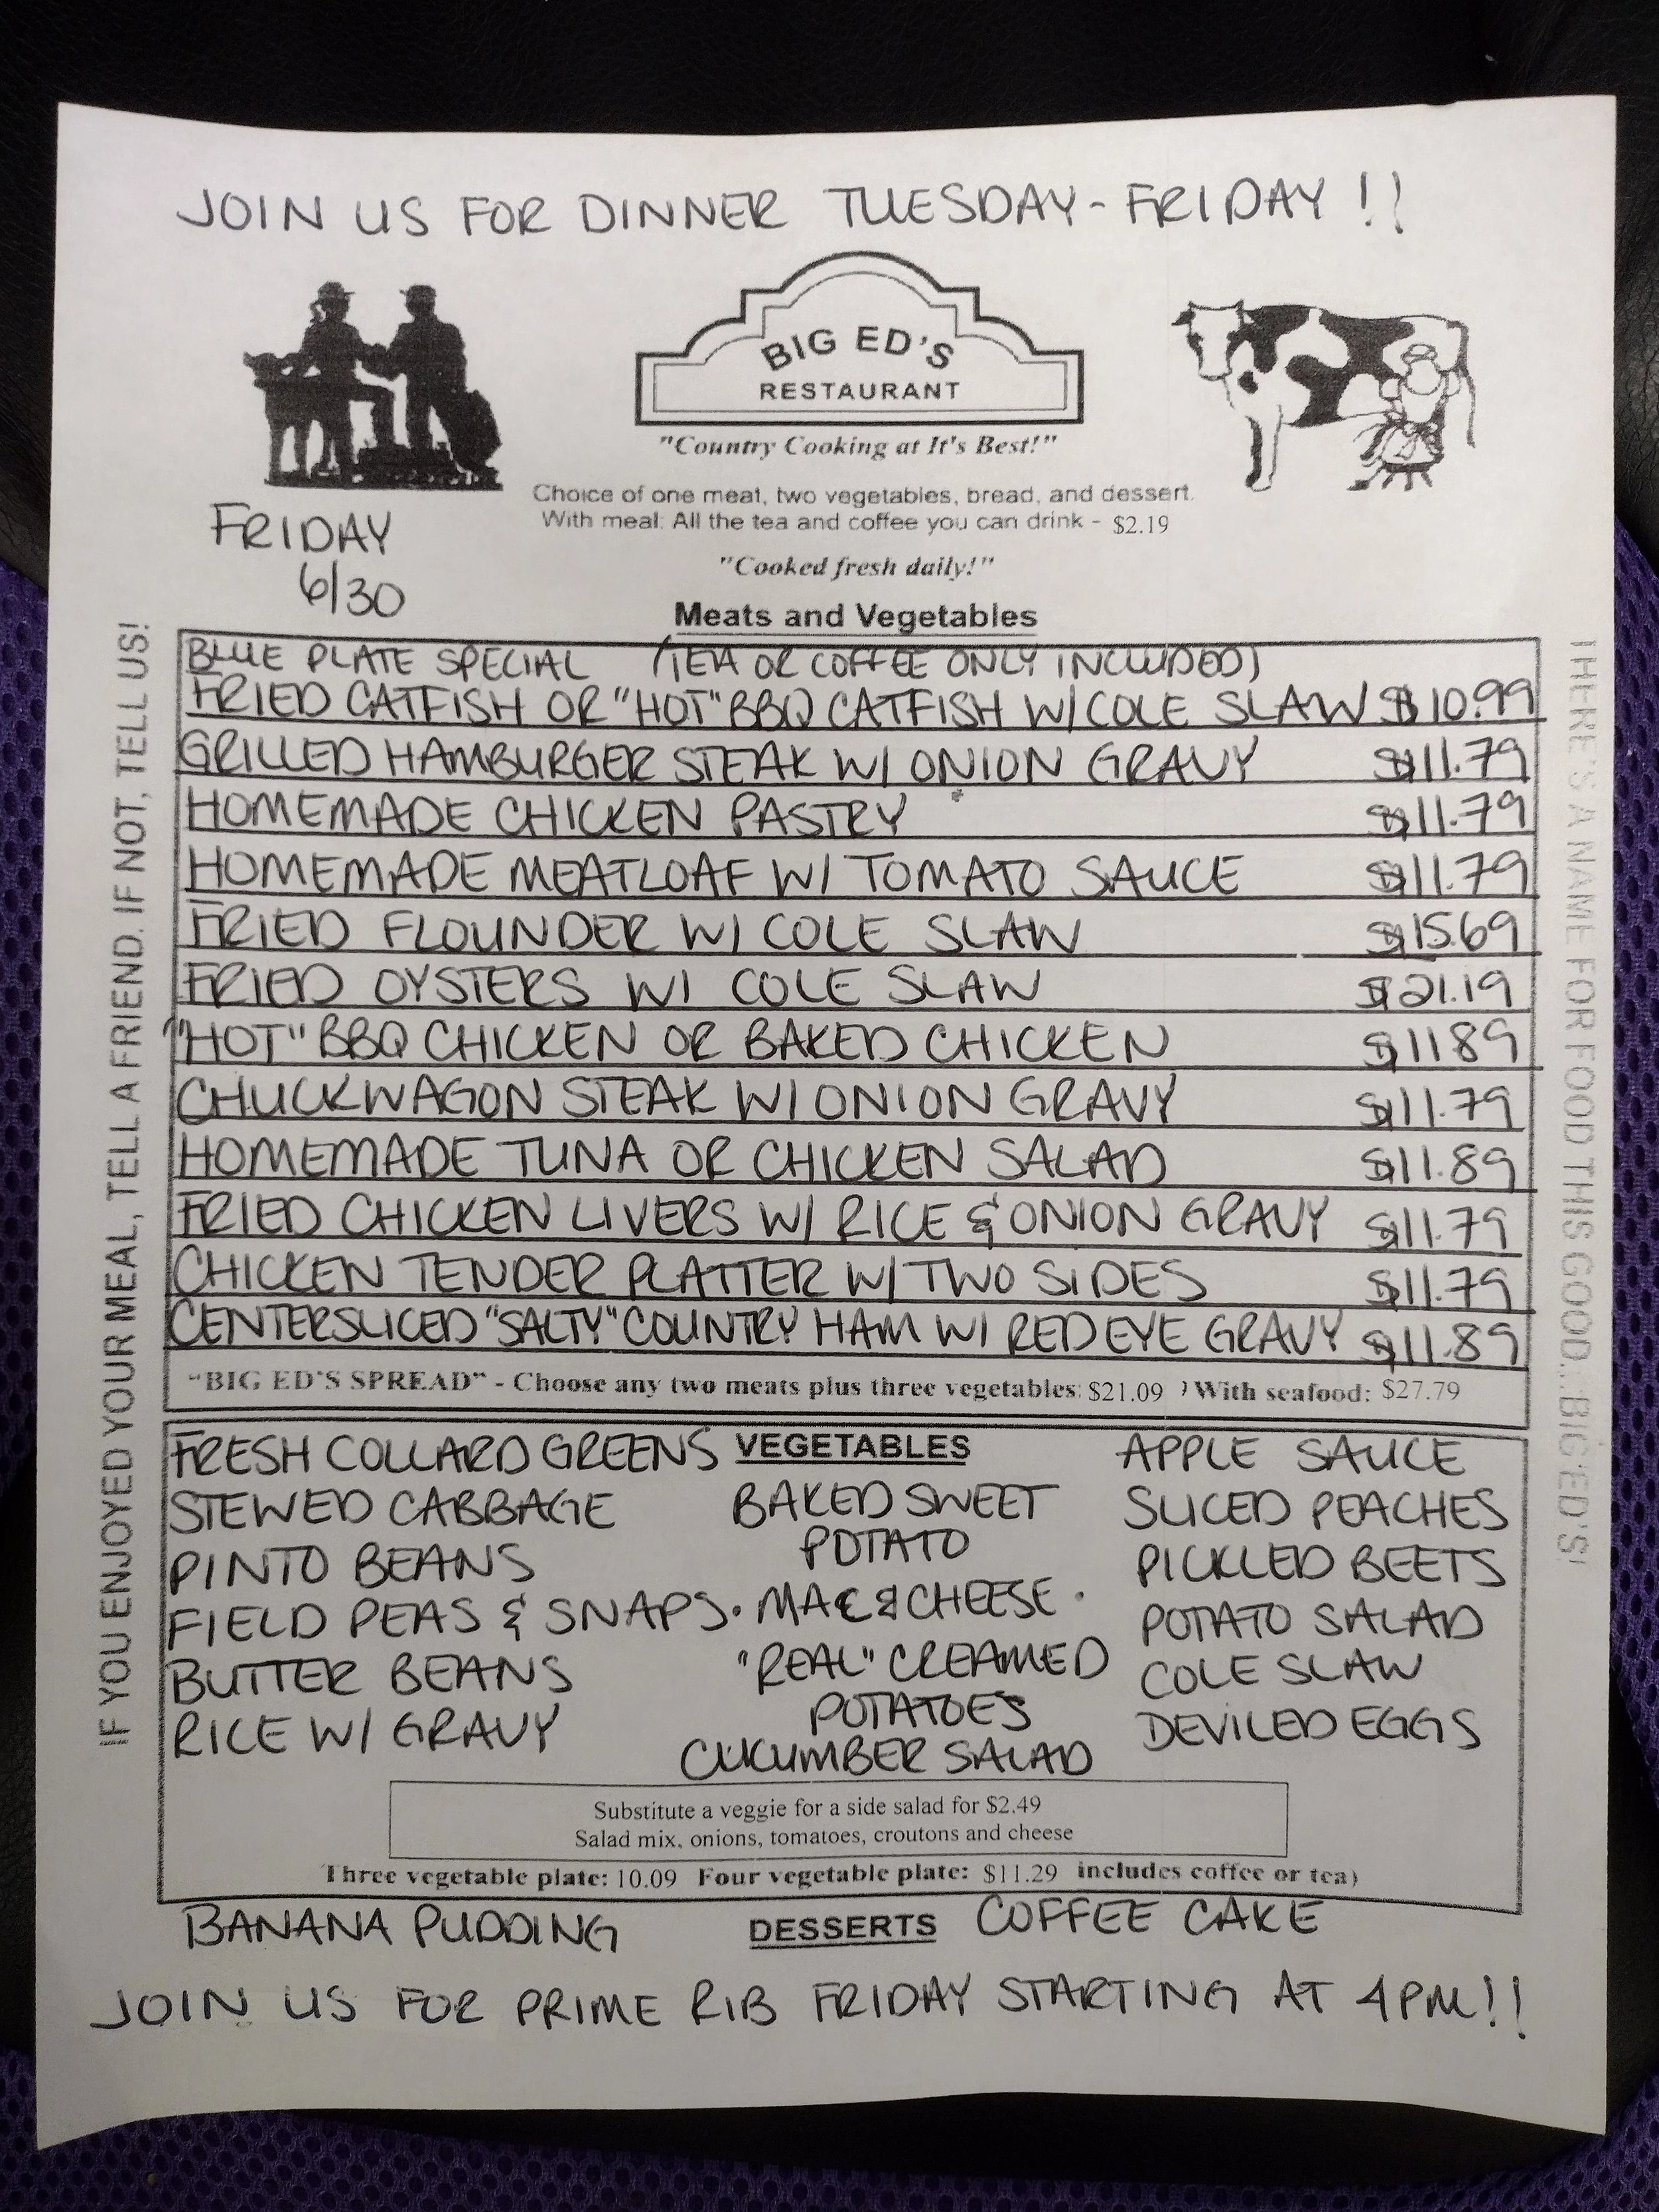 JOIN US FOR DINNER TUESDAY - FRIDAY !!
BIG ED'S
RESTAURANT
"Country Cooking at It's Best!"
Choice of one meat, two vegetables, bread, and dessert.
With meal: All the tea and coffee you can drink - $2.19
"Cooked fresh daily!"
FRIDAY
6/30
Meats and Vegetables
BLUE PLATE SPECIAL (TEA OR COFFEE ONLY INCLUDED)
FRIED CATFISH OR "HOT" BBQ CATFISH W/ COLE SLAW $10.99
GRILLED HAMBURGER STEAK W/ ONION GRAVY $11.79
HOMEMADE CHICKEN PASTRY $11.79
HOMEMADE MEATLOAF W/ TOMATO SAUCE $11.79
FRIED FLOUNDER W/ COLE SLAW $15.69
FRIED OYSTERS W/ COLE SLAW $21.19
"HOT" BBQ CHICKEN OR BAKED CHICKEN $11.89
CHUCKWAGON STEAK W/ ONION GRAVY $11.79
HOMEMADE TUNA OR CHICKEN SALAD $11.89
FRIED CHICKEN LIVERS W/ RICE & ONION GRAVY $11.79
CHICKEN TENDER PLATTER W/ TWO SIDES $11.79
CENTERSLICED "SALTY" COUNTRY HAM W/ RED EYE GRAVY $11.89
"BIG ED'S SPREAD" - Choose any two meats plus three vegetables: $21.09 ) With seafood: $27.79
VEGETABLES
FRESH COLLARD GREENS
STEWED CABBAGE
PINTO BEANS
FIELD PEAS & SNAPS
BUTTER BEANS
RICE W/ GRAVY
BAKED SWEET
POTATO
• MAC & CHEESE •
"REAL" CREAMED
POTATOES
CUCUMBER SALAD
APPLE SAUCE
SLICED PEACHES
PICKLED BEETS
POTATO SALAD
COLE SLAW
DEVILED EGGS
Substitute a veggie for a side salad for $2.49
Salad mix, onions, tomatoes, croutons and cheese
Three vegetable plate: 10.09 Four vegetable plate: $11.29 includes coffee or tea)
BANANA PUDDING DESSERTS COFFEE CAKE
JOIN US FOR PRIME RIB FRIDAY STARTING AT 4PM!!
IF YOU ENJOYED YOUR MEAL, TELL A FRIEND. IF NOT, TELL US!
THERE'S A NAME FOR FOOD THIS GOOD...BIG ED'S!